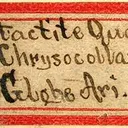 tactite Qua
Chrysocolla
Globe Ari.